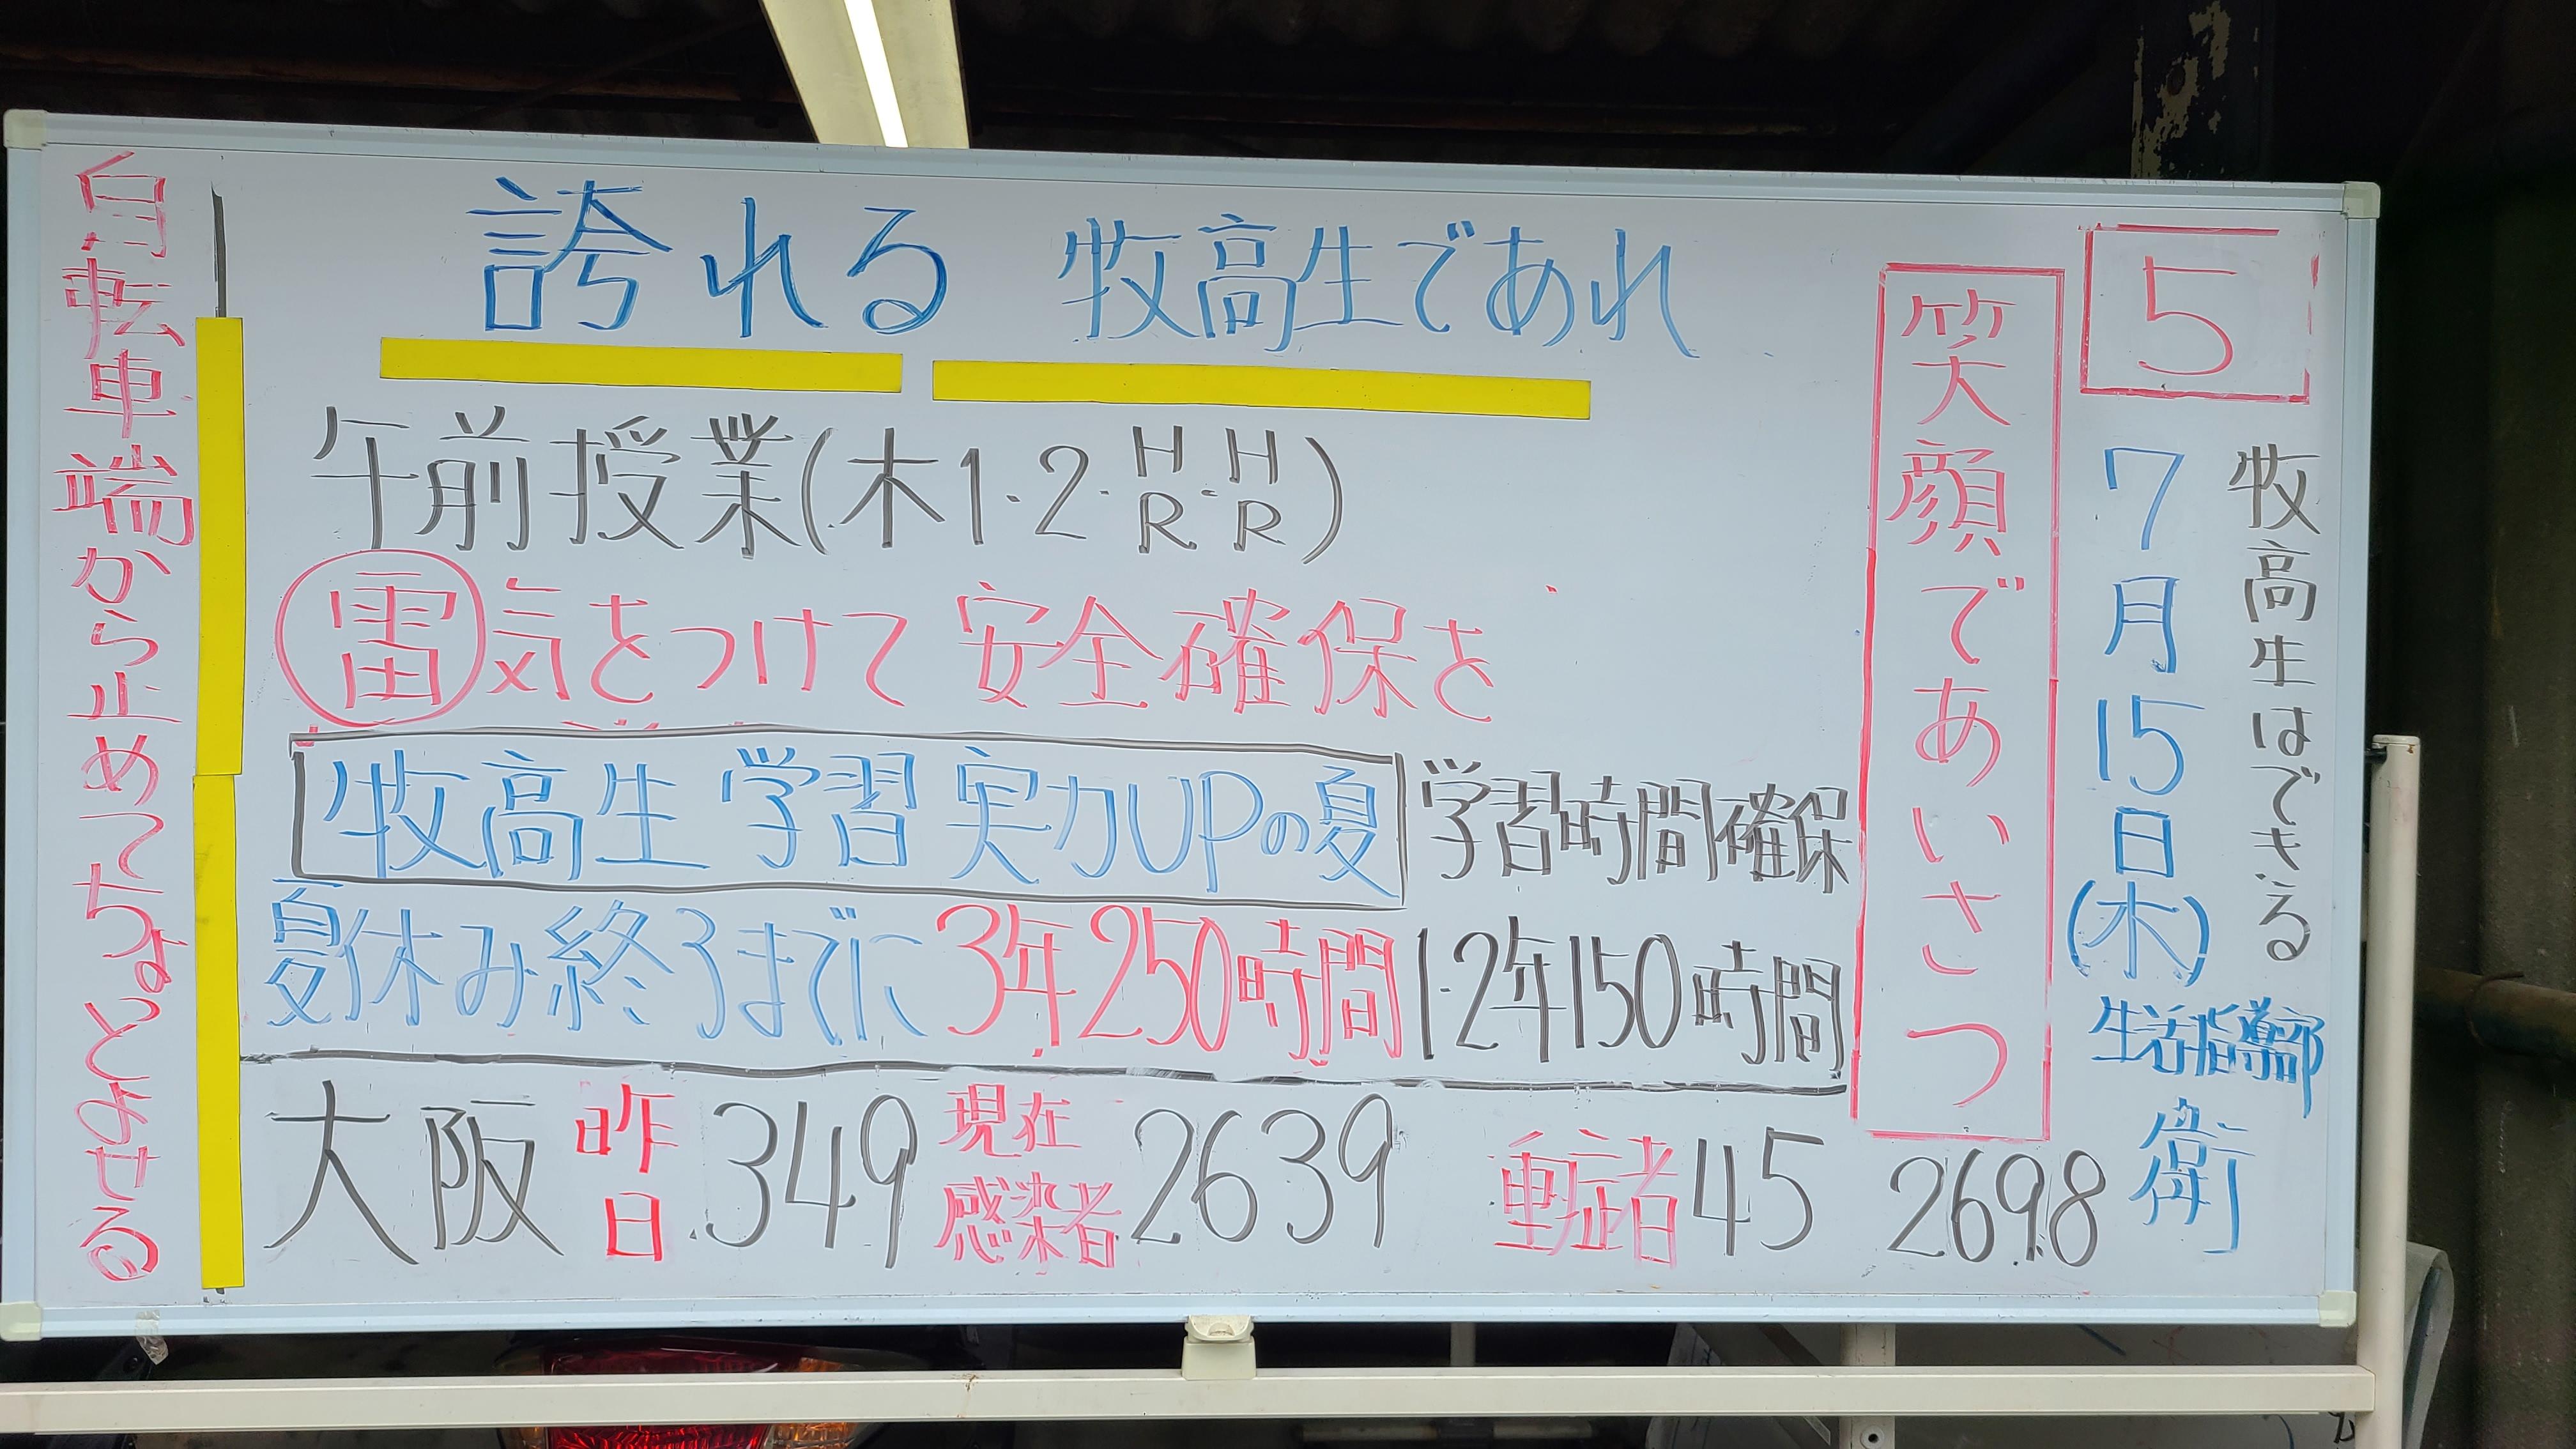 5
牧高生はできる
7月15日(木)
生活指導部
衛
笑顔であいさつ
誇れる 牧高生であれ
午前授業(木1·2·HR·HR)
雷 気をつけて 安全確保を
牧高生 学習 実力UPの夏 学習時間確保
夏休み終るまでに 3年250時間 1·2年150時間
大阪 昨日 349 現在感染者 2639 重症者 45 2698
自転車端から止めてちょっとみせる